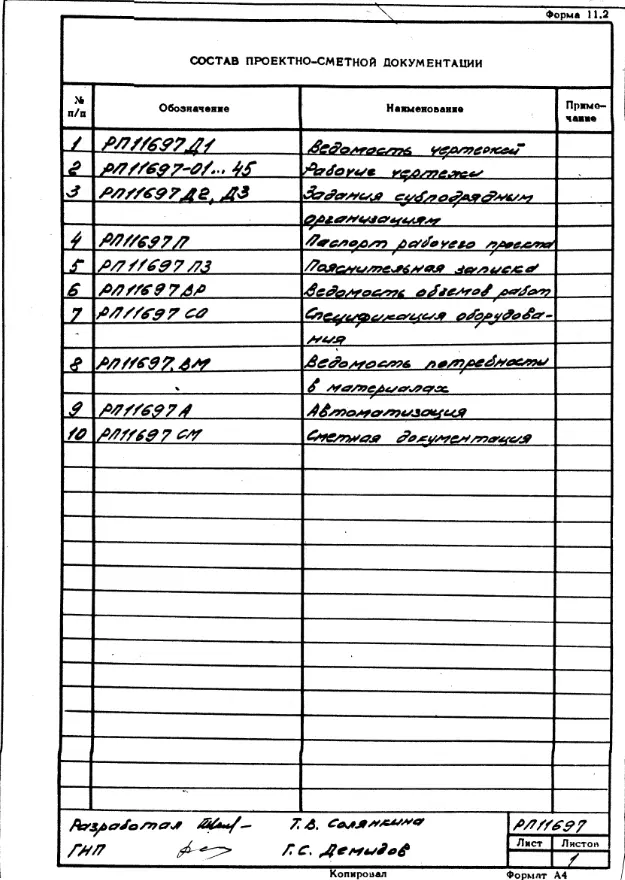 Форма 11.2
СОСТАВ ПРОЕКТНО-СМЕТНОЙ ДОКУМЕНТАЦИИ
№ п/п Обозначение Наименование Приме-
чание
1 РП11697Д1 Ведомость чертежей
2 РП11697-01... 45 Рабочие чертежи
3 РП11697Д2, Д3 Задания субподрядным
организациям
4 РП11697П Паспорт рабочего проекта
5 РП11697ПЗ Пояснительная записка
6 РП11697ВР Ведомость объемов работ
7 РП11697 СО Спецификация оборудова-
ния
8 РП11697.ВМ Ведомость потребности
в материалах
9 РП11697А Автоматизация
10 РП11697 СМ Сметная документация
Разработал Т.В. Солянкина РП11697
ГИП Г.С. Демидов Лист Листов
1
Копировал Формат А4